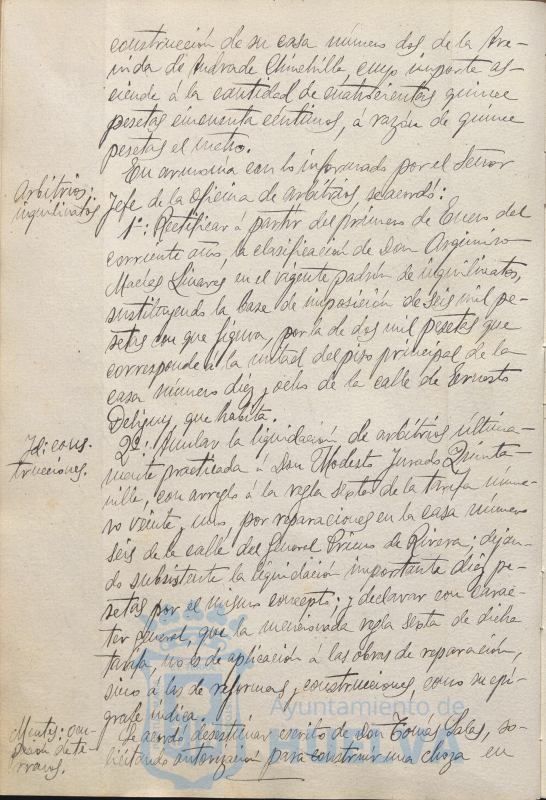 construcción de su casa número dos, de la Ave-
nida de Andrade Chinchilla, cuyo importe as-
ciende á la cantidad de cuatrocientas quince
pesetas cincuenta céntimos, á razón de quince
pesetas el metro.
Arbitrios: inquilinatos
En armonía con lo informado por el Señor
Jefe de la Oficina de arbitrios, se acordó:
1º: Rectificar á partir del primero de Enero del
corriente año, la clasificación de Don Argimiro
Macías Linares en el vigente padrón de inquilinatos,
sustituyendo la base de imposición de seis mil pe-
setas con que figura, por la de dos mil pesetas que
corresponde á la mitad del piso principal de la
casa número diez y ocho de la calle de Ernesto
Deligny que habita.
Id: cons-
trucciones.
2º: Anular la liquidación de arbitrios última-
mente practicada á Don Modesto Jurado Quinta-
nilla, con arreglo á la regla sexta de la tarifa núme-
ro veinte y uno, por reparaciones en la casa número
seis de la calle del General Primo de Rivera; dejan-
do subsistente la liquidación importante diez pe-
setas por el mismo concepto; y declarar con carác-
ter general, que la mencionada regla sexta de dicha
tarifa, no es de aplicación á las obras de reparación,
sino á las de reformas y construcciones, como su epí-
grafe indica.
Montes: ocu-
pación de te-
rrenos.
Se acordó desestimar escrito de Don Tomás Salas, so-
licitando autorización para construir una choza en
Ayuntamiento de
HUELVA